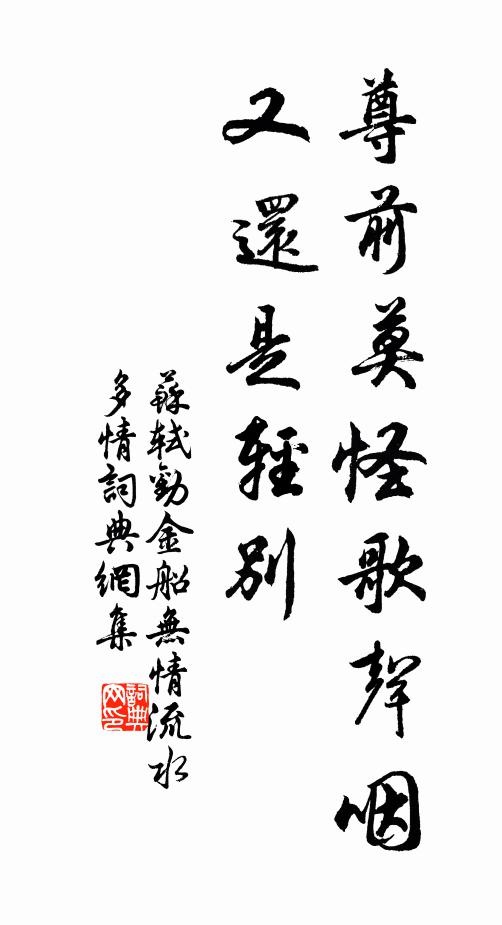 尊前莫怪歌聲咽
又還是輕別
蘇軾勸金船無情流水
多情詞典網集
詞典
网印